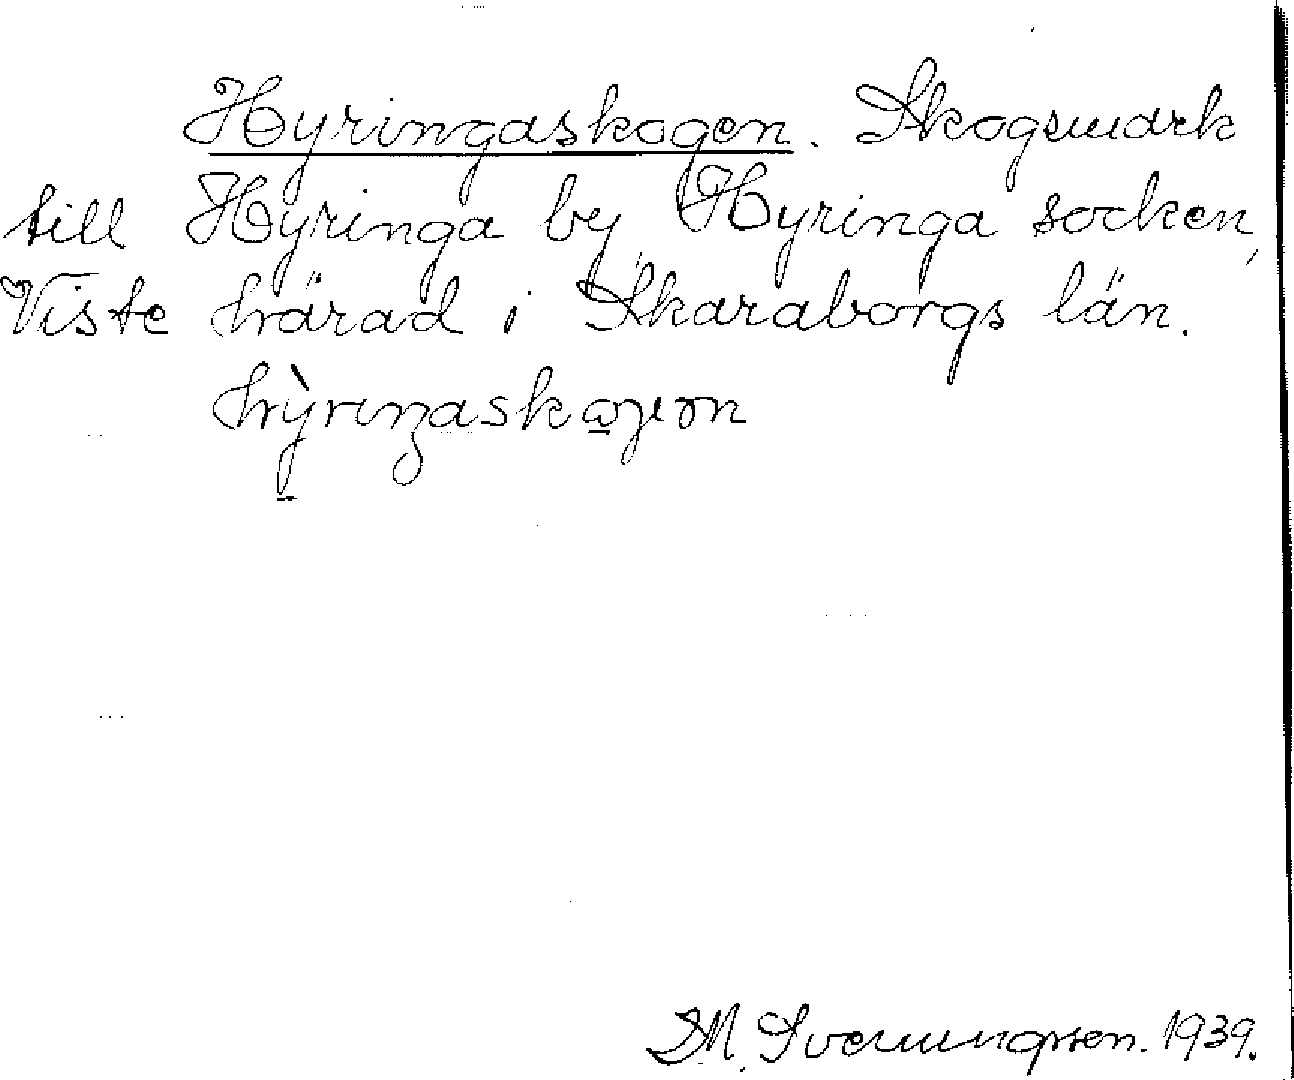 Hyringaskogen. Skogsmark
till Hyringa by, Hyringa socken,
Viste härad i Skaraborgs län.
1939.